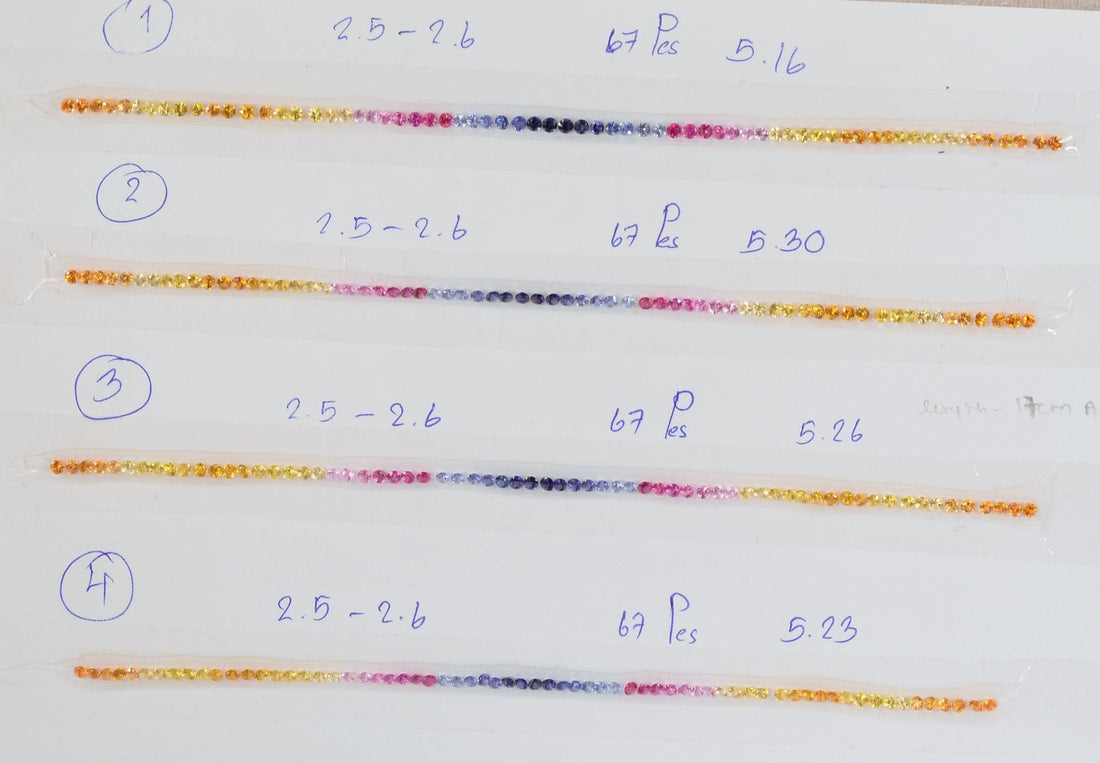 1 2.5 - 2.6 67 Pcs 5.16
2 2.5 - 2.6 67 Pcs 5.30
3 2.5 - 2.6 67 Pcs 5.26
length - 17cm
4 2.5 - 2.6 67 Pcs 5.23